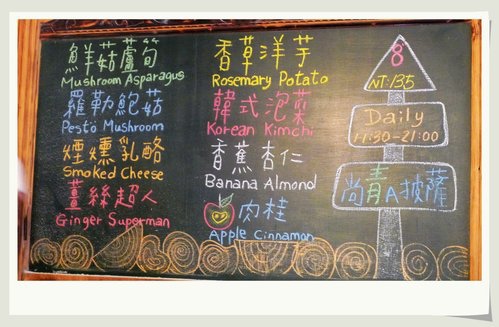 鮮菇蘆筍
Mushroom Asparagus
羅勒鮑菇
Pesto Mushroom
煙燻乳酪
Smoked Cheese
薑絲超人
Ginger Superman
香草洋芋
Rosemary Potato
韓式泡菜
Korean Kimchi
香蕉杏仁
Banana Almond
肉桂
Apple Cinnamon
8
NT:135
Daily
11:30-21:00
尚青A披薩